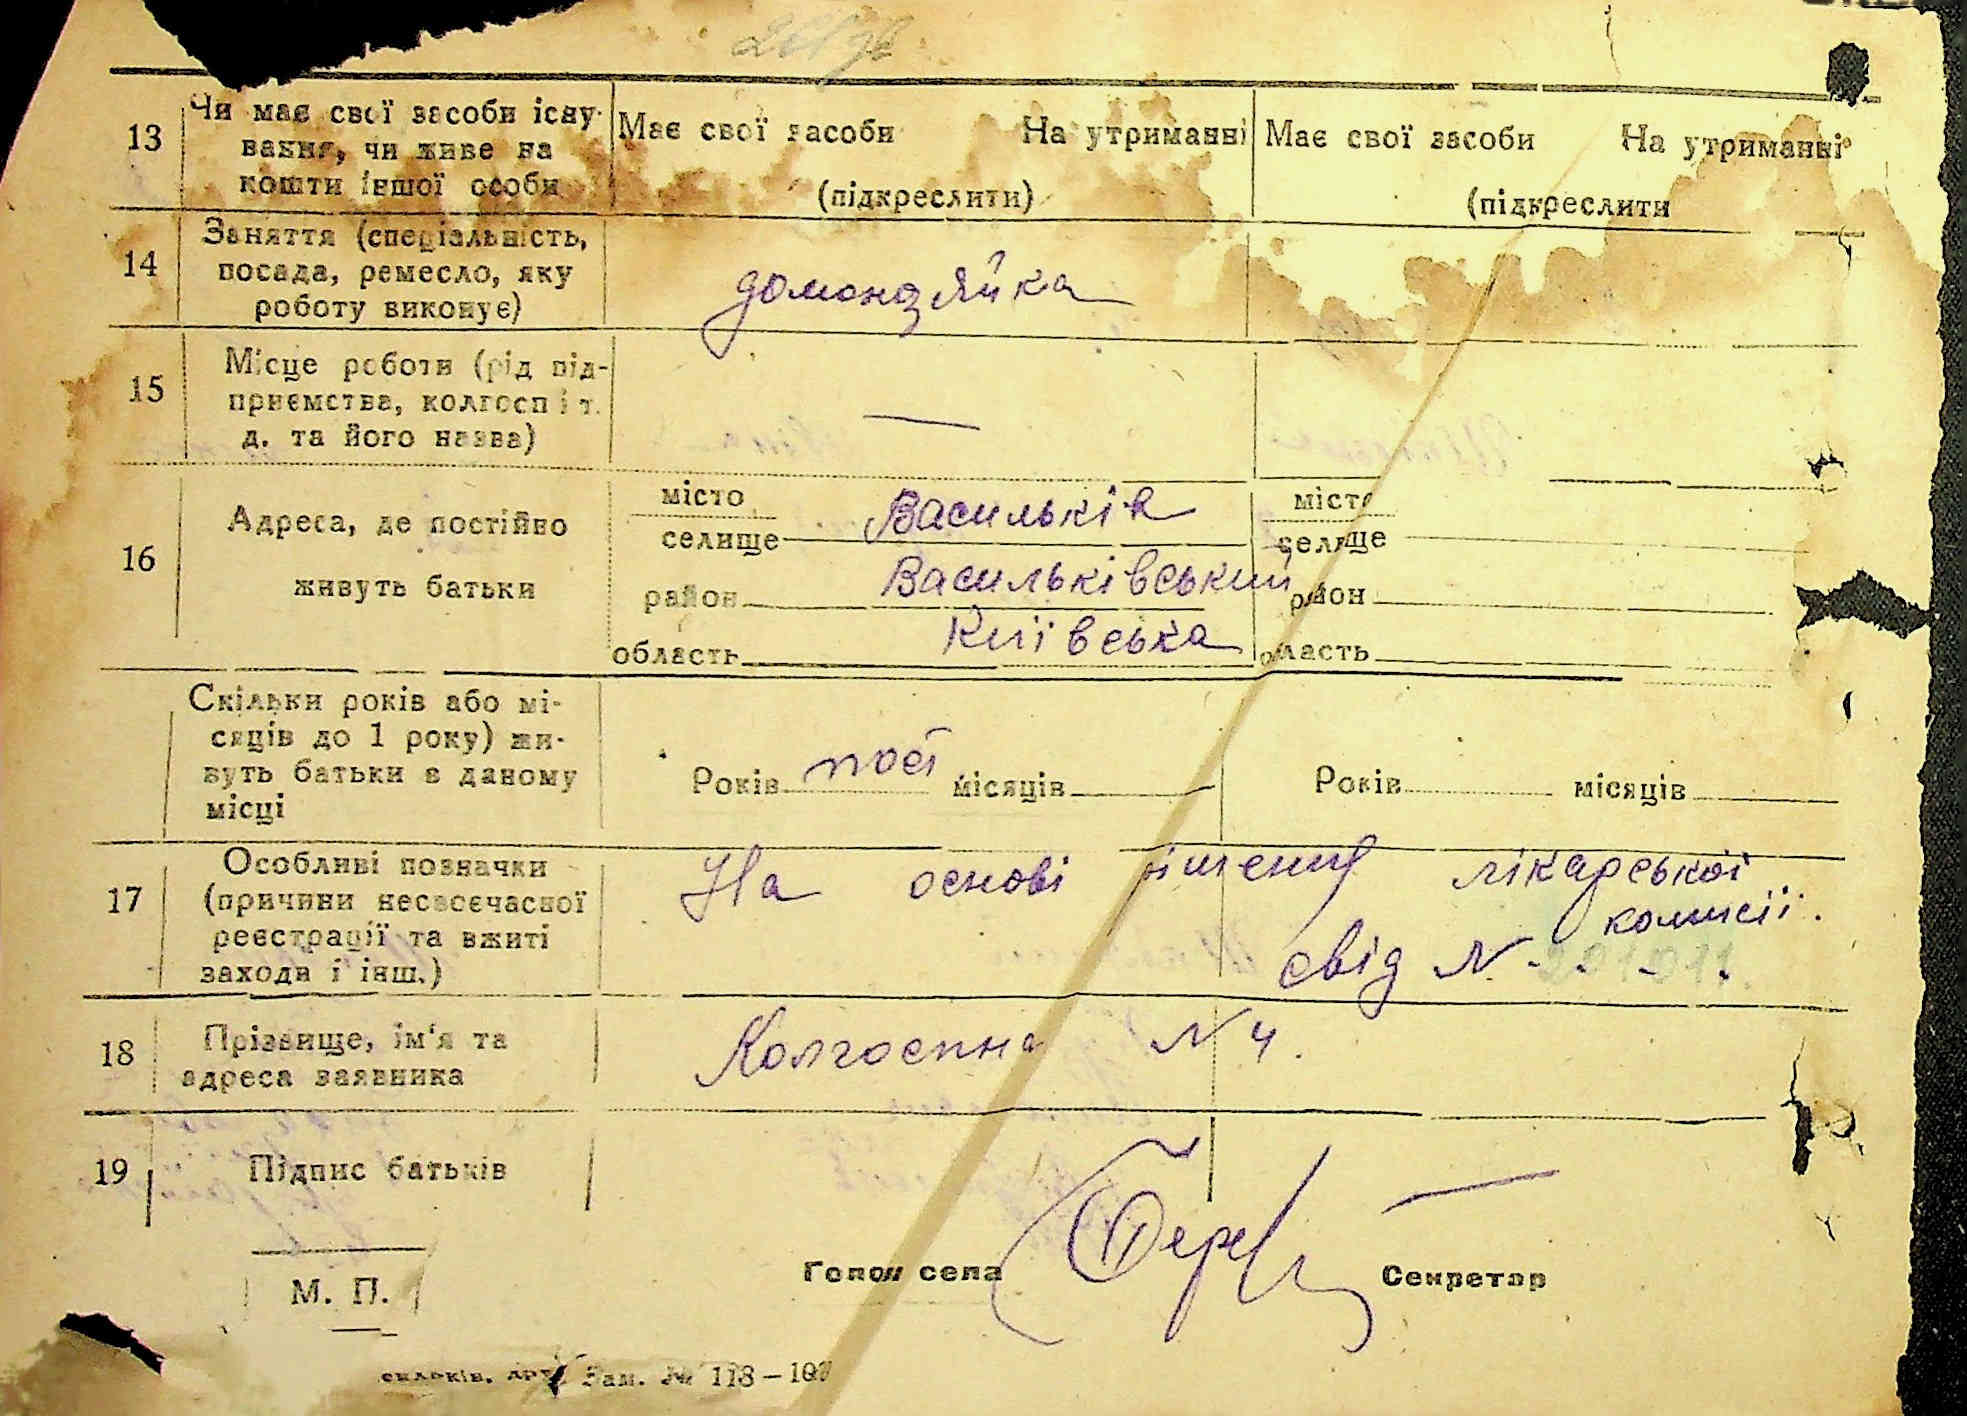 13 Чи має свої засоби існу-
вання, чи живе на
кошти іншої особи
Має свої засоби На утриманні
(підкреслити)
Має свої засоби На утриманні
(підкреслити
14 Заняття (спеціальність,
посада, ремесло, яку
роботу виконує)
домохазяйка
15 Місце роботи (рід під-
приємства, колгосп і т.
д. та його назва)
—
16 Адреса, де постійно
живуть батьки
місто
селище Васильків
район Васильківський
область Київська
місто
селище
район
область
Скільки років або мі-
сяців до 1 року) жи-
вуть батьки в даному
місці
Років пост місяців
Років місяців
17 Особливі позначки
(причини несвоєчасної
реєстрації та вжиті
заходи і інш.)
На основі рішення лікарської
комисії.
свід N 201011.
18 Прізвище, ім'я та
адреса заявника
Колгоспна N 4.
19 Підпис батьків
М. П.
Голов села
Секретар
Зам. № 118—10